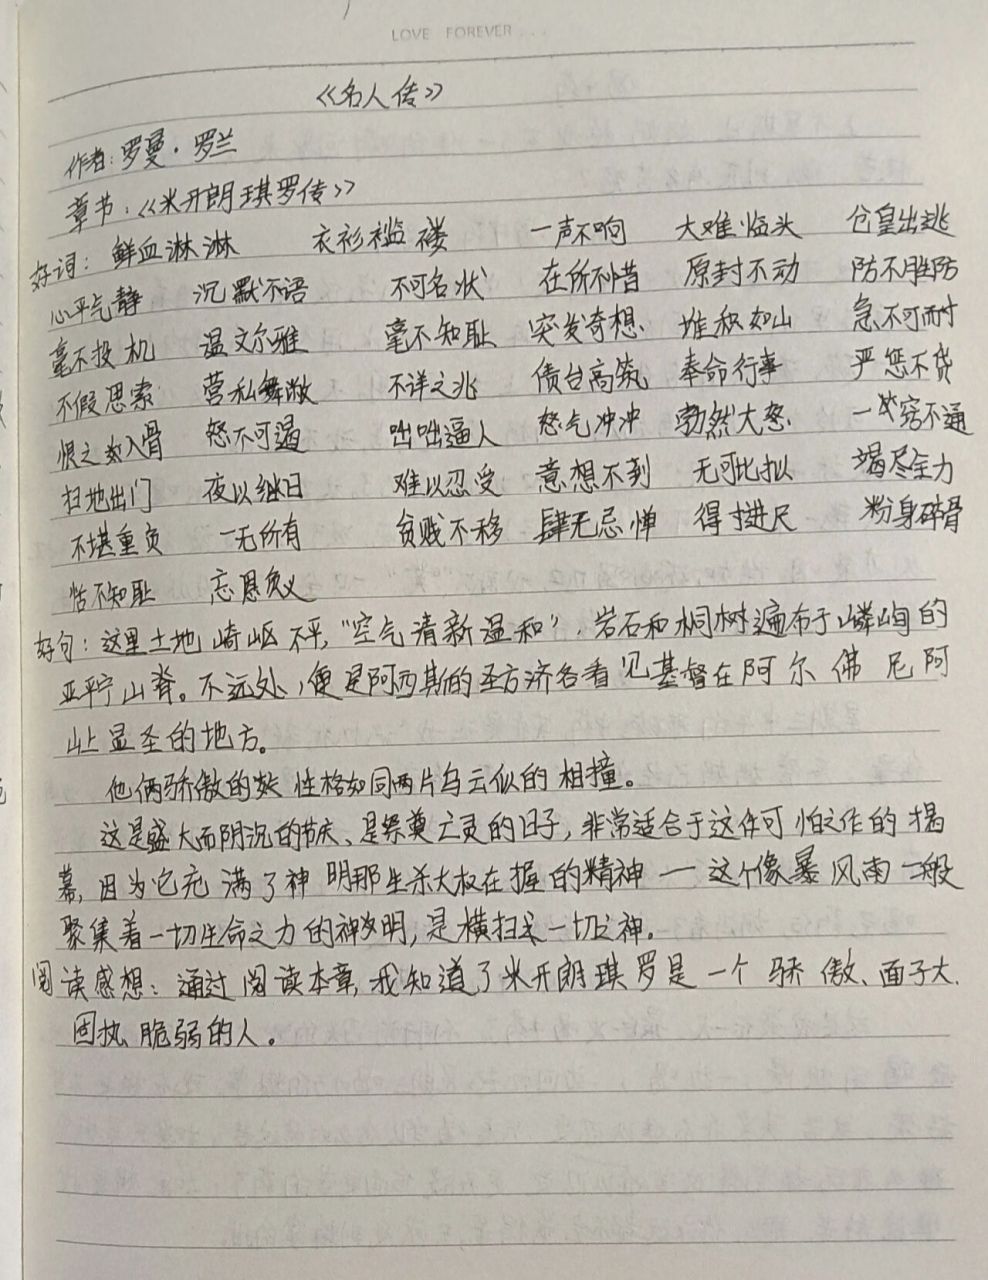 LOVE FOREVER...
《名人传》
作者：罗曼·罗兰
章节：《米开朗琪罗传》
好词：鲜血淋淋 衣衫褴褛 一声不响 大难临头 仓皇出逃
心平气静 沉默不语 不可名状 在所不惜 原封不动 防不胜防
毫不投机 温文尔雅 毫不知耻 突发奇想 堆积如山 急不可耐
不假思索 营私舞敝 不详之兆 债台高筑 奉命行事 严惩不贷
恨之入骨 怒不可遏 咄咄逼人 怒气冲冲 勃然大怒 一窍不通
扫地出门 夜以继日 难以忍受 意想不到 无可比拟 竭尽全力
不堪重负 一无所有 贫贱不移 肆无忌惮 得寸进尺 粉身碎骨
恬不知耻 忘恩负义
好句：这里土地崎岖不平，“空气清新温和”，岩石和桐树遍布于嶙峋的
亚平宁山脊。不远处，便是阿西斯的圣方济各看见基督在阿尔佛尼阿
山上显圣的地方。
他俩骄傲的性格如同两片乌云似的相撞。
这是盛大而阴沉的节庆、是祭奠亡灵的日子，非常适合于这件可怕之作的揭
幕，因为它充满了神明那生杀大权在握的精神一这个像暴风雨一般
聚集着一切生命之力的神明，是横扫一切之神。
阅读感想：通过阅读本章，我知道了米开朗琪罗是一个骄傲、面子大、
固执脆弱的人。